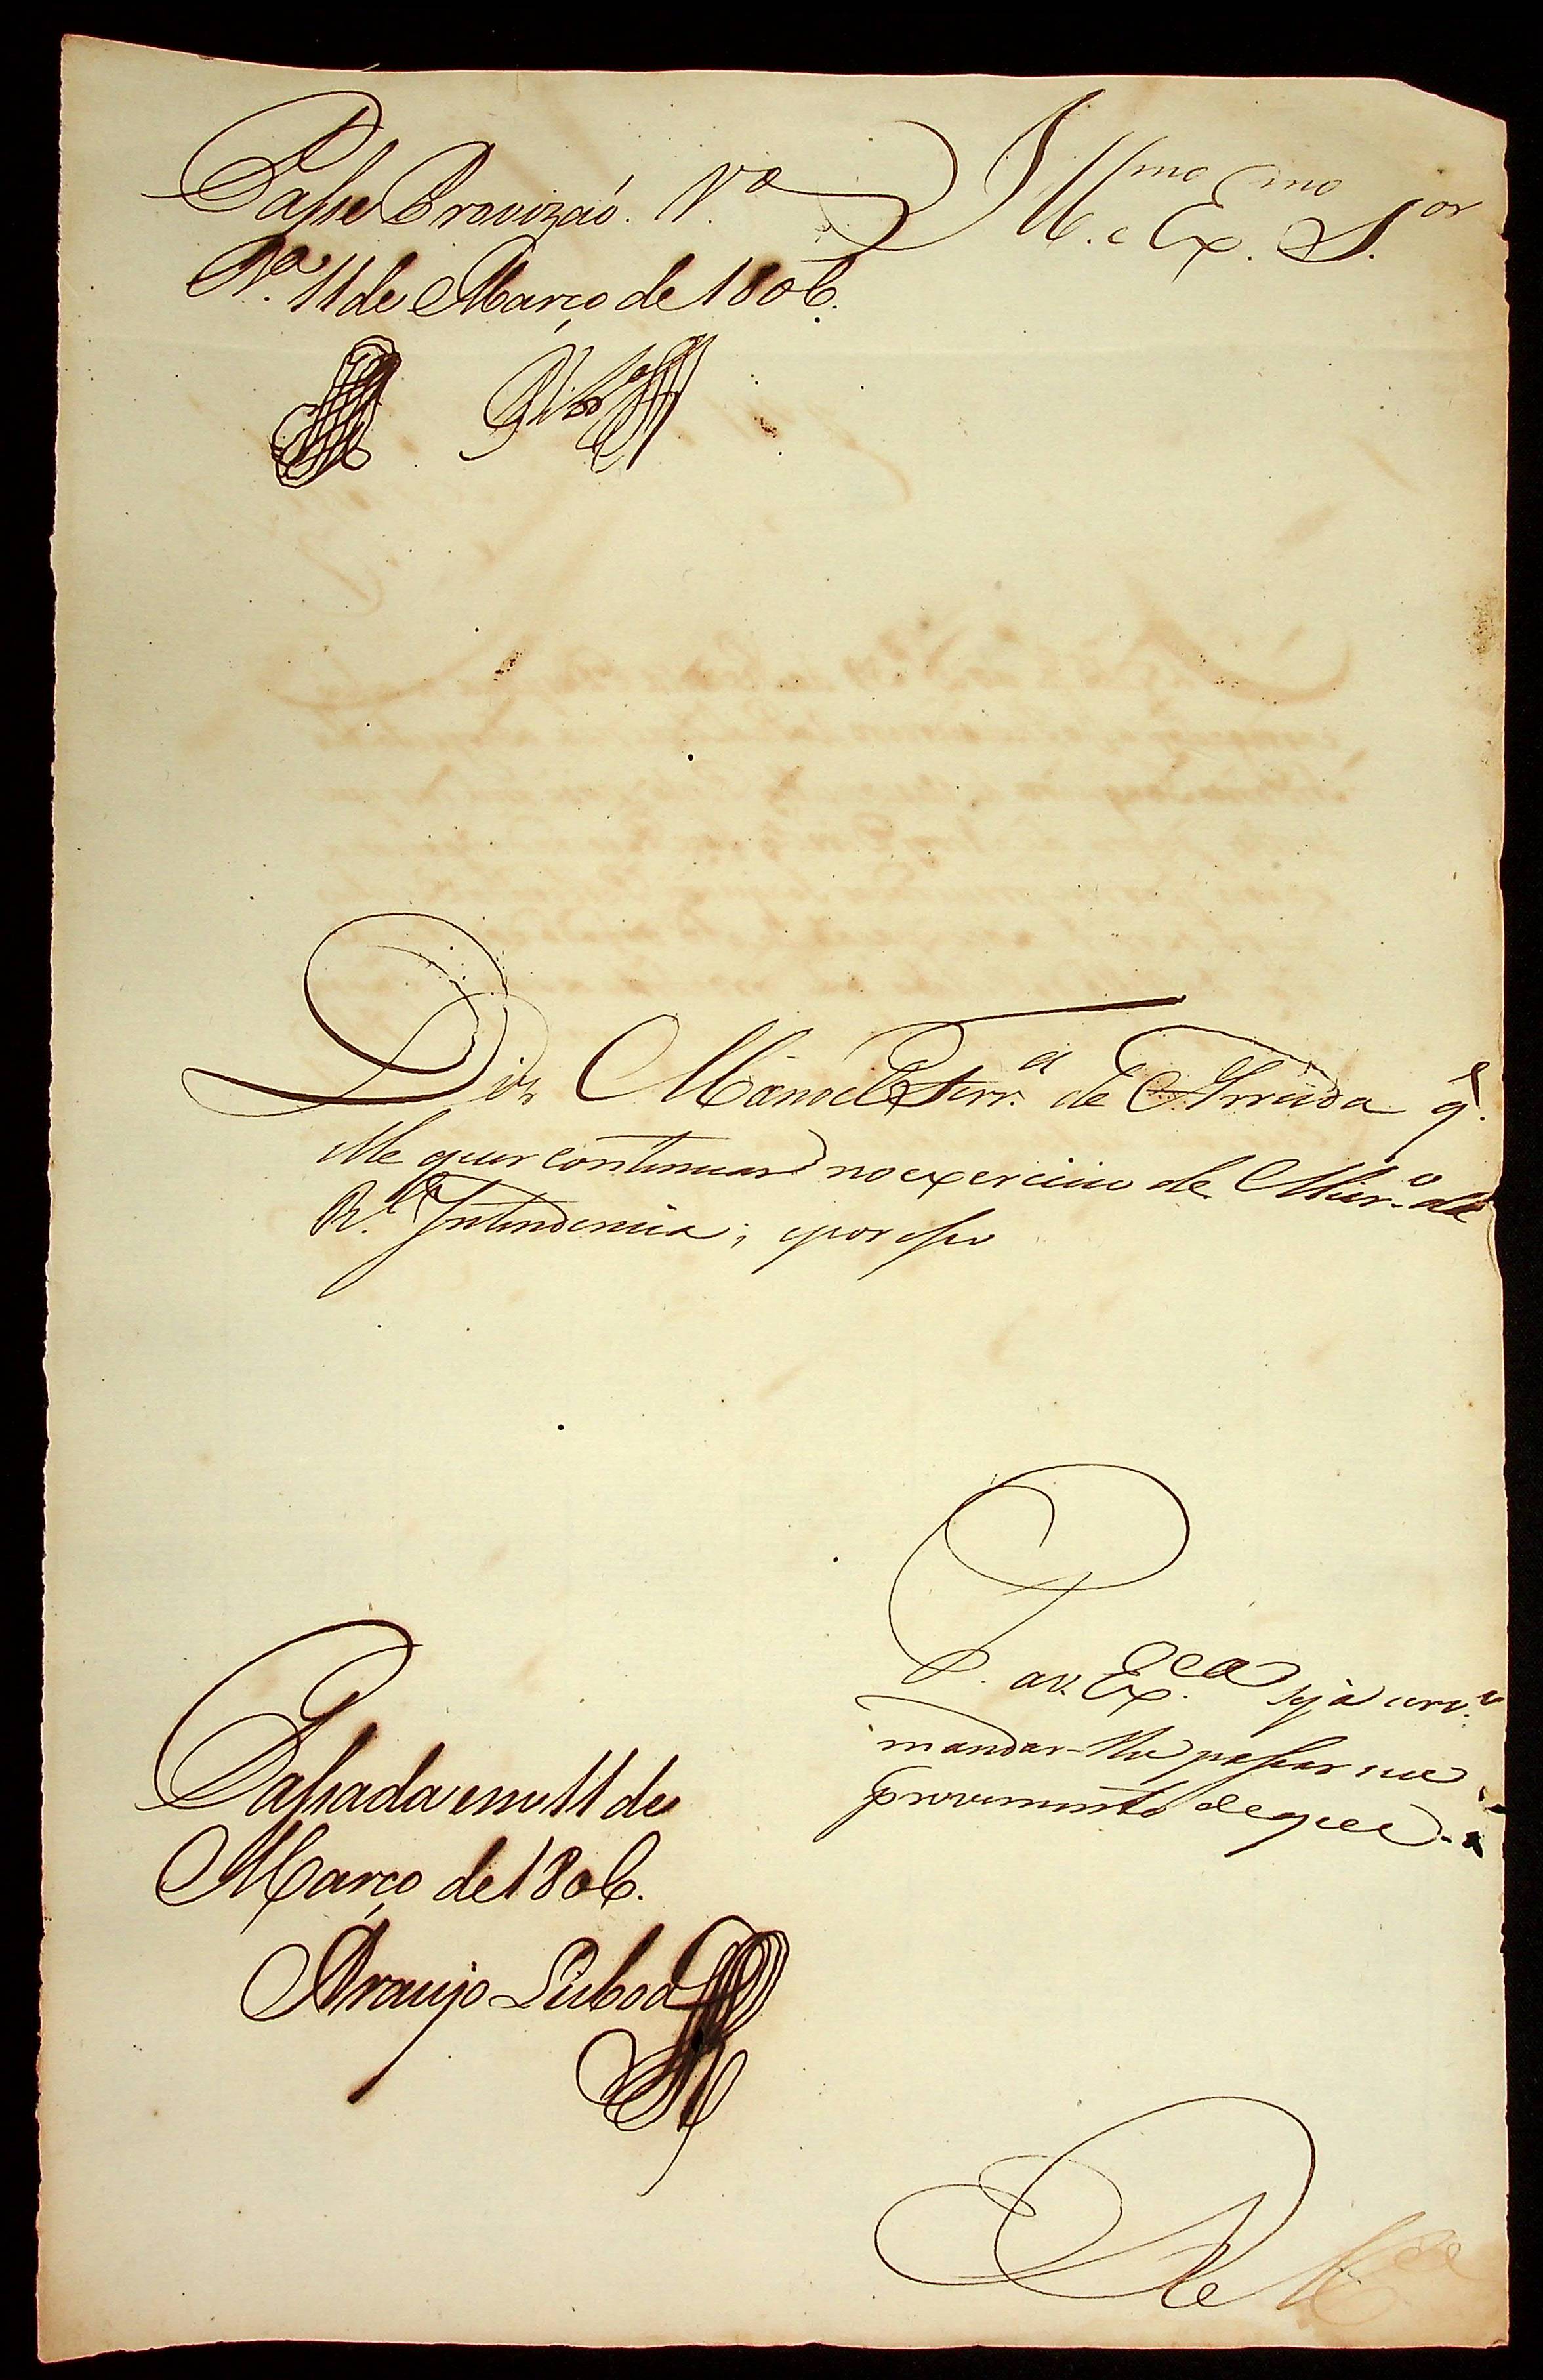 Passe Provizaõ. V.ª
R.ª 11 de Março de 1806.
Ill.mo e Ex.mo S.or
Diz Manoel Ferr.ª de Arruda q.
elle quer continuar no exercicio de Meir.º da
R.l Intendencia; e por isso
P. a V. Ex.ca seja serv.º
mandar-lhe passar seu
provimento de que
E R M.ce
Passada em 11 de
Março de 1806.
Araujo Lisboa